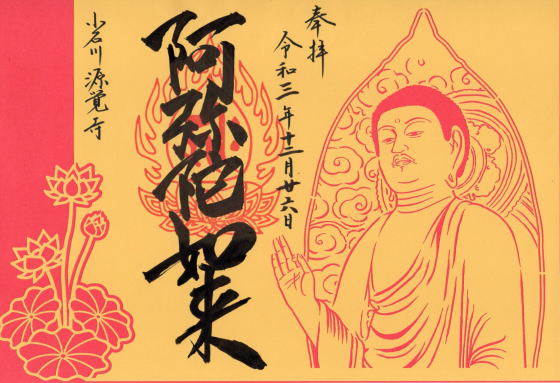 奉拝
令和三年十二月廿六日
阿弥陀如来
小石川源覚寺